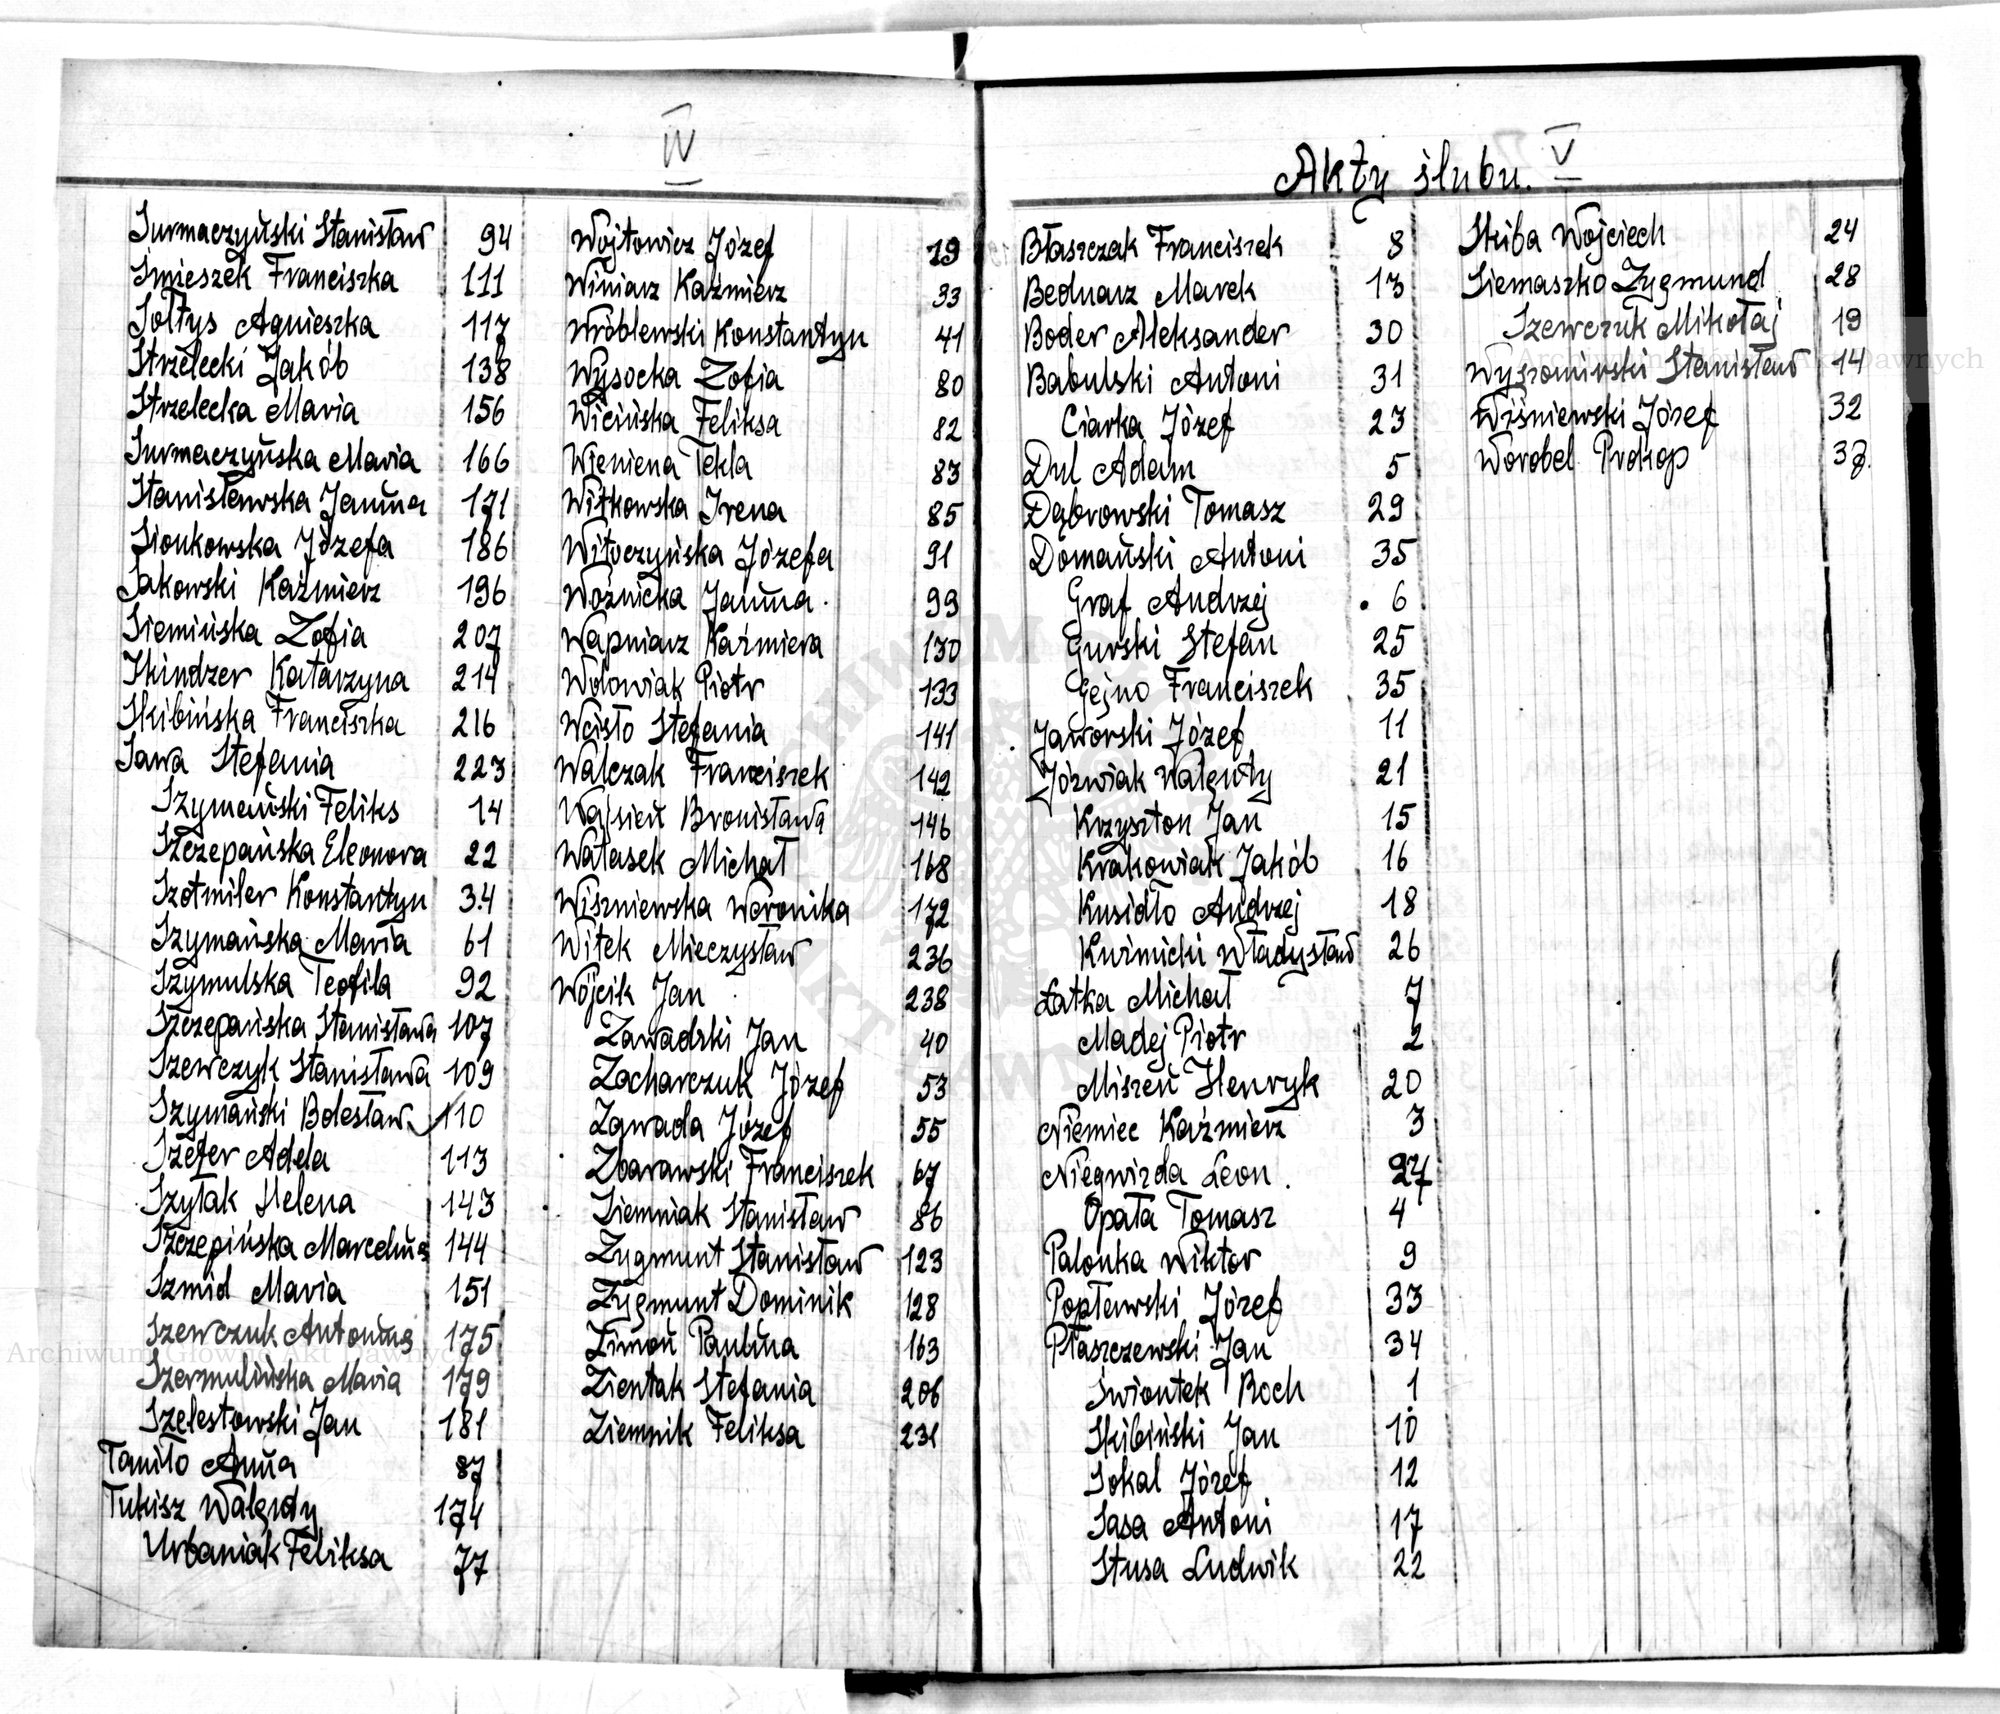 IV
Surmaczyński Stanisław 94
Śmieszek Franciszka 111
Sołtys Agnieszka 117
Strzelecki Jakób 138
Strzelecka Maria 156
Surmaczyńska Maria 166
Stanisławska Janina 171
Sionkowska Józefa 186
Sakowski Kaźmierz 196
Siemińska Zofia 207
Skindzer Katarzyna 214
Skibińska Franciszka 216
Sawa Stefania 223
Szymański Feliks 14
Szczepańska Eleonora 22
Szotmiler Konstantyn 34
Szymańska Maria 61
Szymulska Teofila 92
Szczepańska Stanisława 107
Szewczyk Stanisława 109
Szymański Bolesław 110
Szefer Adela 113
Szylak Helena 143
Szczepińska Marcelina 144
Szmid Maria 151
Szewczuk Antonina 175
Szermulińska Maria 179
Szelestowski Jan 181
Taniło Anna 87
Tukisz Walenty 174
Urbaniak Feliksa 77
Wójtowicz Józef 19
Winiarz Kaźmierz 33
Wróblewski Konstantyn 41
Wysocka Zofia 80
Wicińska Feliksa 82
Wieniena Tekla 83
Witkowska Irena 85
Witoczyńska Józefa 91
Woźnicka Janina 99
Wapniarz Kaźmiera 130
Wołowiak Piotr 133
Wcisło Stefania 141
Walczak Franciszek 142
Wajsień Bronisława 146
Watasek Michał 168
Wiszniewska Weronika 172
Witek Mieczysław 236
Wójcik Jan 238
Zawadzki Jan 40
Zacharczuk Józef 53
Zawada Józef 55
Zbarawski Franciszek 67
Ziemniak Stanisław 86
Zygmunt Stanisław 123
Zygmunt Dominik 128
Zimoń Paulina 163
Zientak Stefania 206
Ziemnik Feliksa 231
V
Akty ślubu.
Błaszczak Franciszek 8
Bednarz Marek 13
Boder Aleksander 30
Babulski Antoni 31
Ciarka Józef 23
Dul Adam 5
Dąbrowski Tomasz 29
Domański Antoni 35
Graf Andrzej 6
Gurski Stefan 25
Gejno Franciszek 35
Jaworski Józef 11
Jóźwiak Walenty 21
Krzyszton Jan 15
Krakowiak Jakób 16
Kusidło Andrzej 18
Kuźmicki Władysław 26
Łatka Michał 7
Madej Piotr 2
Miszeń Henryk 20
Niemiec Kaźmierz 3
Niegwizda Leon. 27
Opała Tomasz 4
Palonka Wiktor 9
Popławski Józef 33
Płaszczewski Jan 34
Świontek Roch 1
Skibiński Jan 10
Sokal Józef 12
Sasa Antoni 17
Stusa Ludwik 22
Skiba Wojciech 24
Siemaszko Zygmund 28
Szewczuk Mikołaj 19
Wyszomirski Stanisław 14
Wiśniewski Józef 32
Worobel Prokop 37.
Archiwum Główne Akt Dawnych
Archiwum Główne Akt Dawnych